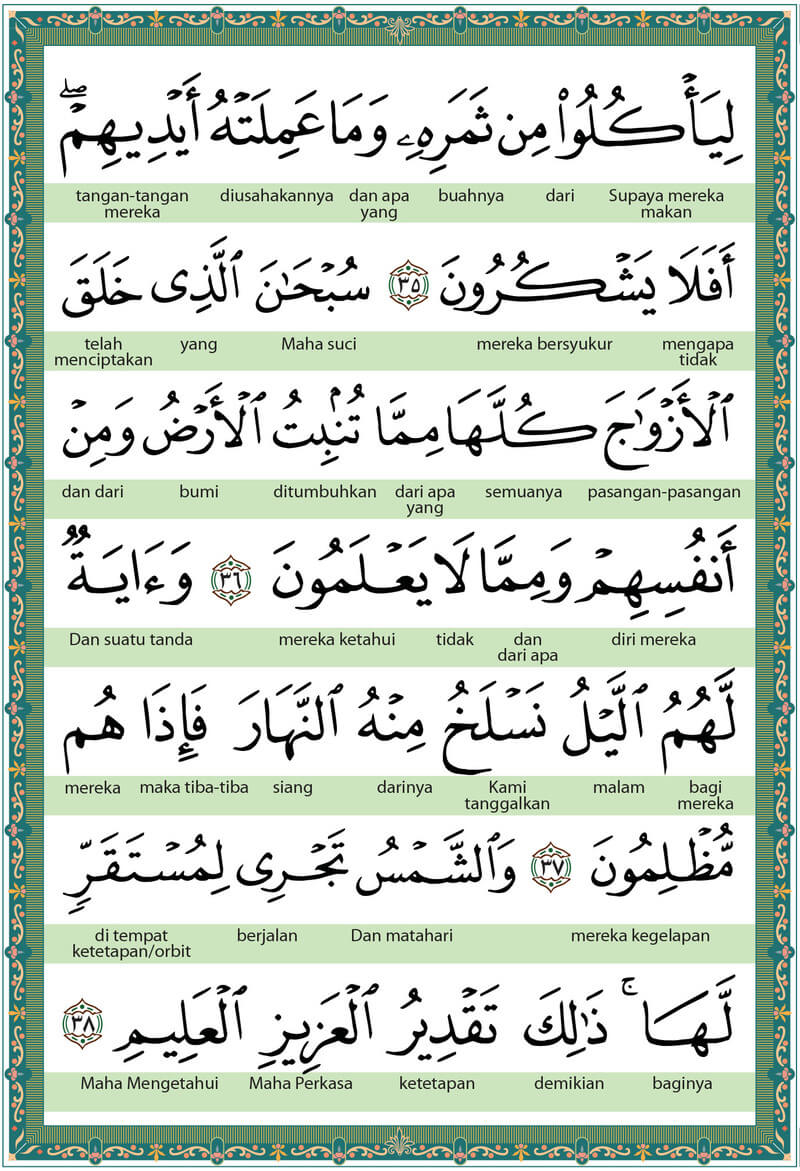 لِيَأۡكُلُواْ مِن ثَمَرِهِۦ وَمَا عَمِلَتۡهُ أَيۡدِيهِمۡۚ
Supaya mereka makan dari buahnya dan apa yang diusahakannya tangan-tangan mereka
أَفَلَا يَشۡكُرُونَ ٣٥ سُبۡحَٰنَ ٱلَّذِي خَلَقَ
mengapa tidak mereka bersyukur Maha suci yang telah menciptakan
ٱلۡأَزۡوَٰجَ كُلَّهَا مِمَّا تُنۢبِتُ ٱلۡأَرۡضُ وَمِنۡ
pasangan-pasangan semuanya dari apa yang ditumbuhkan bumi dan dari
أَنفُسِهِمۡ وَمِمَّا لَا يَعۡلَمُونَ ٣٦ وَءَايَةٞ
diri mereka dan dari apa tidak mereka ketahui Dan suatu tanda
لَّهُمُ ٱلَّيۡلُ نَسۡلَخُ مِنۡهُ ٱلنَّهَارَ فَإِذَا هُم
bagi mereka malam Kami tanggalkan darinya siang maka tiba-tiba mereka
مُّظۡلِمُونَ ٣٧ وَٱلشَّمۡسُ تَجۡرِي لِمُسۡتَقَرّٖ
mereka kegelapan Dan matahari berjalan di tempat ketetapan/orbit
لَّهَاۚ ذَٰلِكَ تَقۡدِيرُ ٱلۡعَزِيزِ ٱلۡعَلِيمِ ٣٨
baginya demikian ketetapan Maha Perkasa Maha Mengetahui